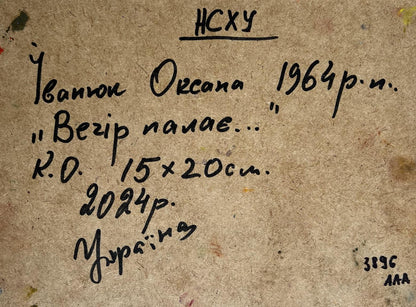 НСХУ
Іванюк Оксана 1964р.н.
„Вечір палає..."
К.О. 15×20см.
2024р.
Україна
3896
ААА